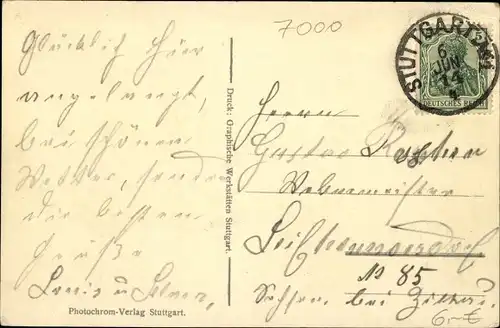 7000
STUTTGART
6
JUN
14
DEUTSCHES REICH
Glücklich hier
angelangt,
bei schönem
Wetter, senden
die besten
Grüße
Louis u.
Druck: Graphische Werkstätten Stuttgart.
Photochrom-Verlag Stuttgart.
Herrn
Gustav
Webermeister
No 85
Sachsen. bei Zittau.
6.-€